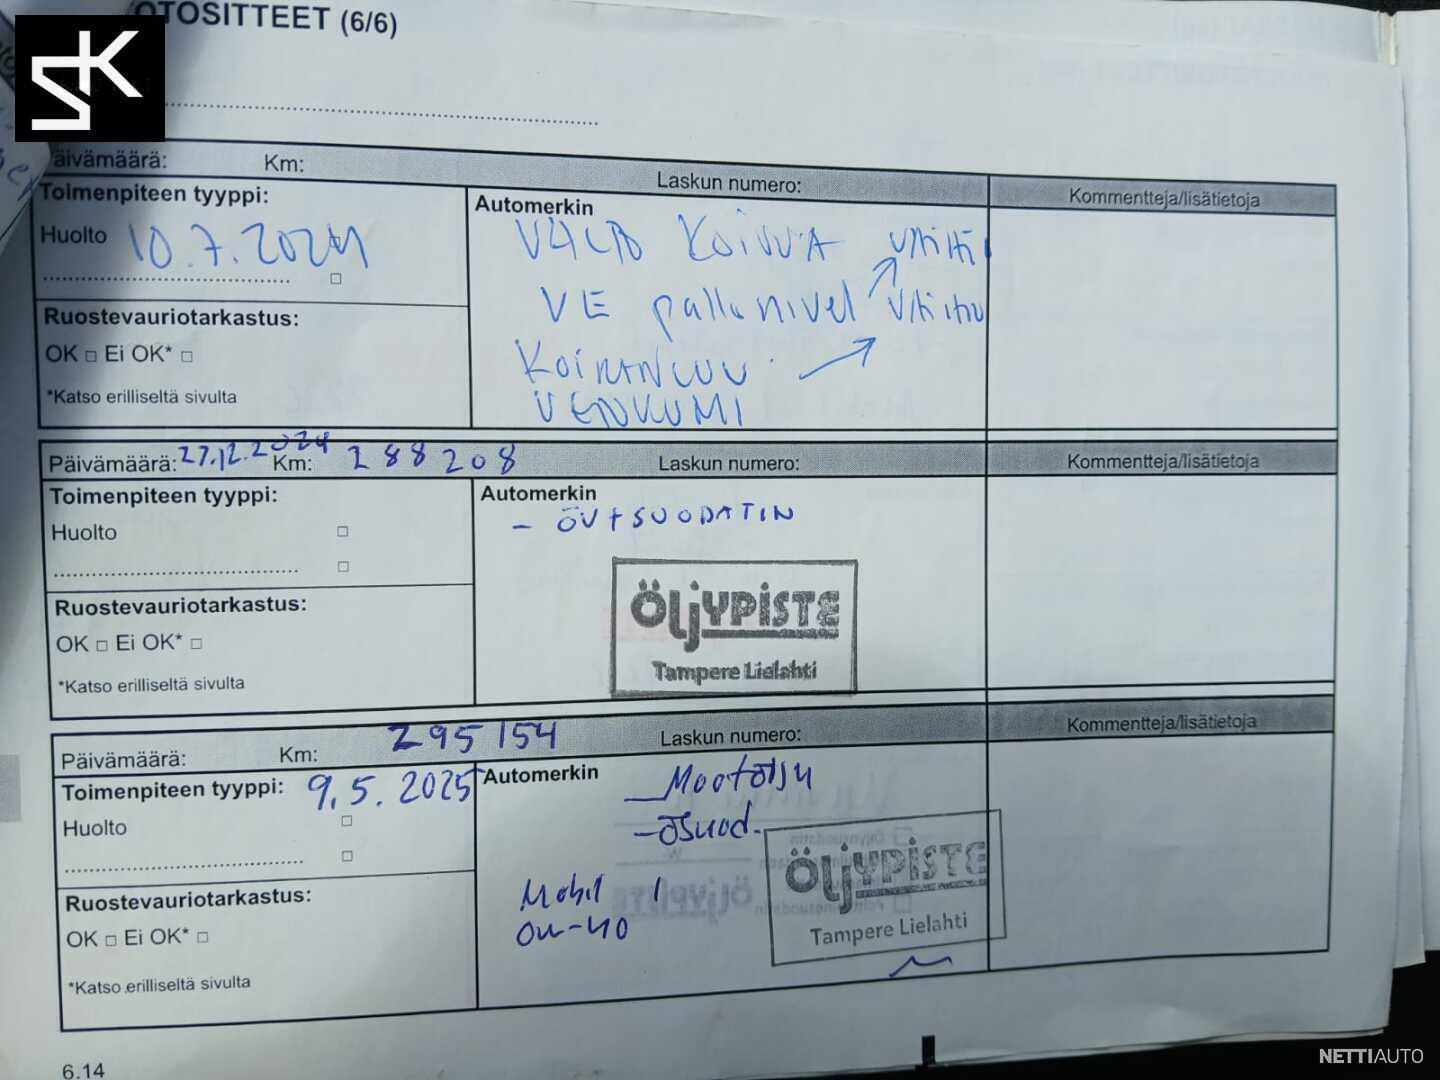 OTOSITTEET (6/6)
SK
äivämäärä: Km: Laskun numero: Kommentteja/lisätietoja
Toimenpiteen tyyppi:
Automerkin
Huolto 10.7.2024
VE pallonivel
Ruostevauriotarkastus:
OK □ Ei OK* □
KOIRANLUU
*Katso erilliseltä sivulta
Päivämäärä: 27.12.2024 Km: 288208 Laskun numero: Kommentteja/lisätietoja
Toimenpiteen tyyppi:
Automerkin
- ÖV+SUODATIN
Huolto □
□
ÖLJYPISTE
Tampere Lielahti
Ruostevauriotarkastus:
OK □ Ei OK* □
*Katso erilliseltä sivulta
Päivämäärä: Km: 295154 Laskun numero: Kommentteja/lisätietoja
Toimenpiteen tyyppi: 9.5.2025
Automerkin
Huolto □
□
- Ösuod.
ÖLJYPISTE
Tampere Lielahti
Mobil 1
0w-40
Ruostevauriotarkastus:
OK □ Ei OK* □
*Katso erilliseltä sivulta
6.14
NETTIAUTO